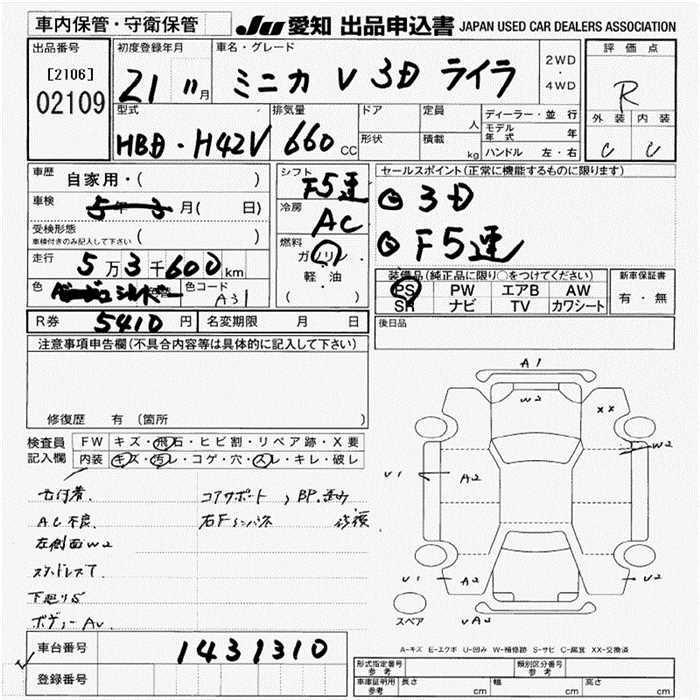 車内保管・守衛保管
JU 愛知 出品申込書 JAPAN USED CAR DEALERS ASSOCIATION
出品番号
[2106]
02109
初度登録年月
21 11月
車名・グレード
ミニカ V 3D ライラ
2WD
・
4WD
評価点
R
外装 内装
C C
型式
HBD・H42V
排気量
660 CC
ドア
形状
定員
人
積載
kg
ディーラー・並行
モデル年式 年
ハンドル 左・右
車歴 自家用・( )
車検 5年3月( 日)
受検形態 ( )
車検付きのみ記入して下さい
走行 5万3千600km
色 シルバー 色替 色コード A31
シフト F5速
冷房 AC
燃料 ガソリン
軽・油
( )
セールスポイント(正常に機能するものに限ります)
◎ 3D
◎ F5速
装備品(純正品に限り○をつけてください)
PS PW エアB AW
SR ナビ TV カワシート
新車保証書
有・無
R券 5410円 名変期限 月 日
後日品
注意事項申告欄(不具合内容等は具体的に記入して下さい)
修復歴 有 (箇所 )
検査員記入欄
FW キズ・飛石・ヒビ割・リペア跡・X要
内装 キズ・汚レ・コゲ・穴・スレ・キレ・破レ
コアサポート、BP.歪み
AC不良
右Fインパネ 修復
左側面W2
スタッドレスT
下廻りS
ボディーAU
A1
W2
XX
W2
U1
A2
U1
A2
A2
U1
UA2
スペア
A-キズ E-エクボ U-凹み W-補修跡 S-サビ C-腐食 XX-交換済
車台番号 1431310
登録番号
形式指定番号 参考
類別区分番号 参考
車庫証明用 参考 長さ cm 幅 cm 高さ cm